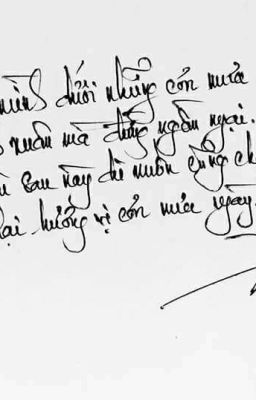 mình dưới những cơn mưa
xuân mà đừng ngần ngại.
sau này dì muốn cũng ch
lại hưởng vị cơn mưa ngày